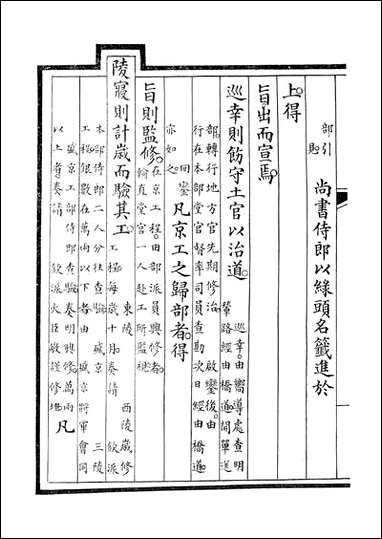 部引
見
尚書侍郎以綠頭名籤進於
上得
旨出而宣焉
巡幸則飭守土官以治道
巡幸由嚮導處查明
輦路經由橋道開單送
部轉行地方官先期修治啟鑾後由
行在本部堂官督率司員查勘次日經由橋道
回鑾
亦如之
凡京工之歸部者得
旨則監修
在京工程由部派員興修者
輪直堂官一人赴工所監視
陵寢則計歲而驗其工
東陵 西陵歲修
工程每歲十月奏請 欽派
本部侍郎二人分往查驗 盛京 三陵
工程銀數在萬兩以下者由 盛京將軍會同
盛京工部侍郎查驗奏明興修萬兩
以上者奏請 欽派大臣敬謹修
凡